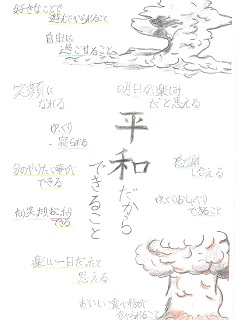 好きなことで
遊んでいられること
自由に
過ごせること
笑顔に
なれる
明日が楽しみ
だと思える
ゆっくり
寝られる
平和だから
できること
自分のやりたい事が
できる
ゆっくりおしゃべり
できること
できる
楽しい一日だったと
思える
おいしい食べ物が
食べられること